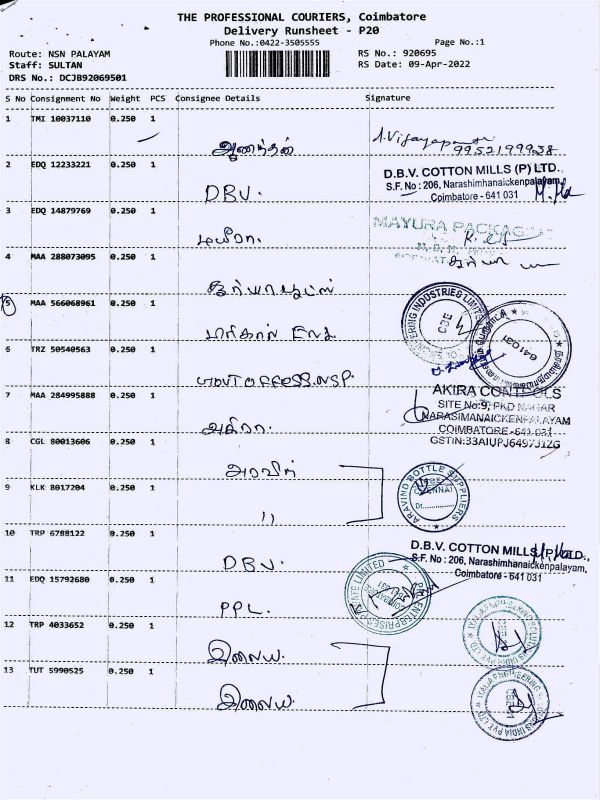 THE PROFESSIONAL COURIERS, Coimbatore
Delivery Runsheet - P20
Phone No.:0422-3505555
Page No.:1
Route: NSN PALAYAM
Staff: SULTAN
DRS No.: DCJB92069501
RS No.: 920695
RS Date: 09-Apr-2022
S No Consignment No Weight PCS Consignee Details Signature
1 TMI 10037110 0.250 1
ஆனந்தன்
9952199938
2 EDQ 12233221 0.250 1
DBV.
D.B.V. COTTON MILLS (P) LTD.,
S.F. No : 206, Narashimhanaickenpalayam,
Coimbatore - 641 031
3 EDQ 14879769 0.250 1
மயூரா.
MAYURA PACKAG
4 MAA 288073095 0.250 1
சூர்யா
5 MAA 566068961 0.250 1
ERING INDUSTRIES LIMITED
CBE
6 TRZ 50540563 0.250 1
641031
7 MAA 284995888 0.250 1
அகிரா.
AKIRA CONTROLS
SITE No:9, PKD NAGAR
NARASIMANAICKENPALAYAM
COIMBATORE -641 031
GSTIN:33AIUPJ6497J1ZG
8 CGL 80013606 0.250 1
அரவிந்
9 KLK 8017204 0.250 1
"
ARAVIND BOTTLE SUPPLIERS
10 TRP 6788122 0.250 1
DBV.
D.B.V. COTTON MILLS (P) LTD.,
S.F. No : 206, Narashimhanaickenpalayam,
Coimbatore - 641 031
11 EDQ 15792680 0.250 1
PPL.
12 TRP 4033652 0.250 1
இலைய.
13 TUT 5990525 0.250 1
இலைய.